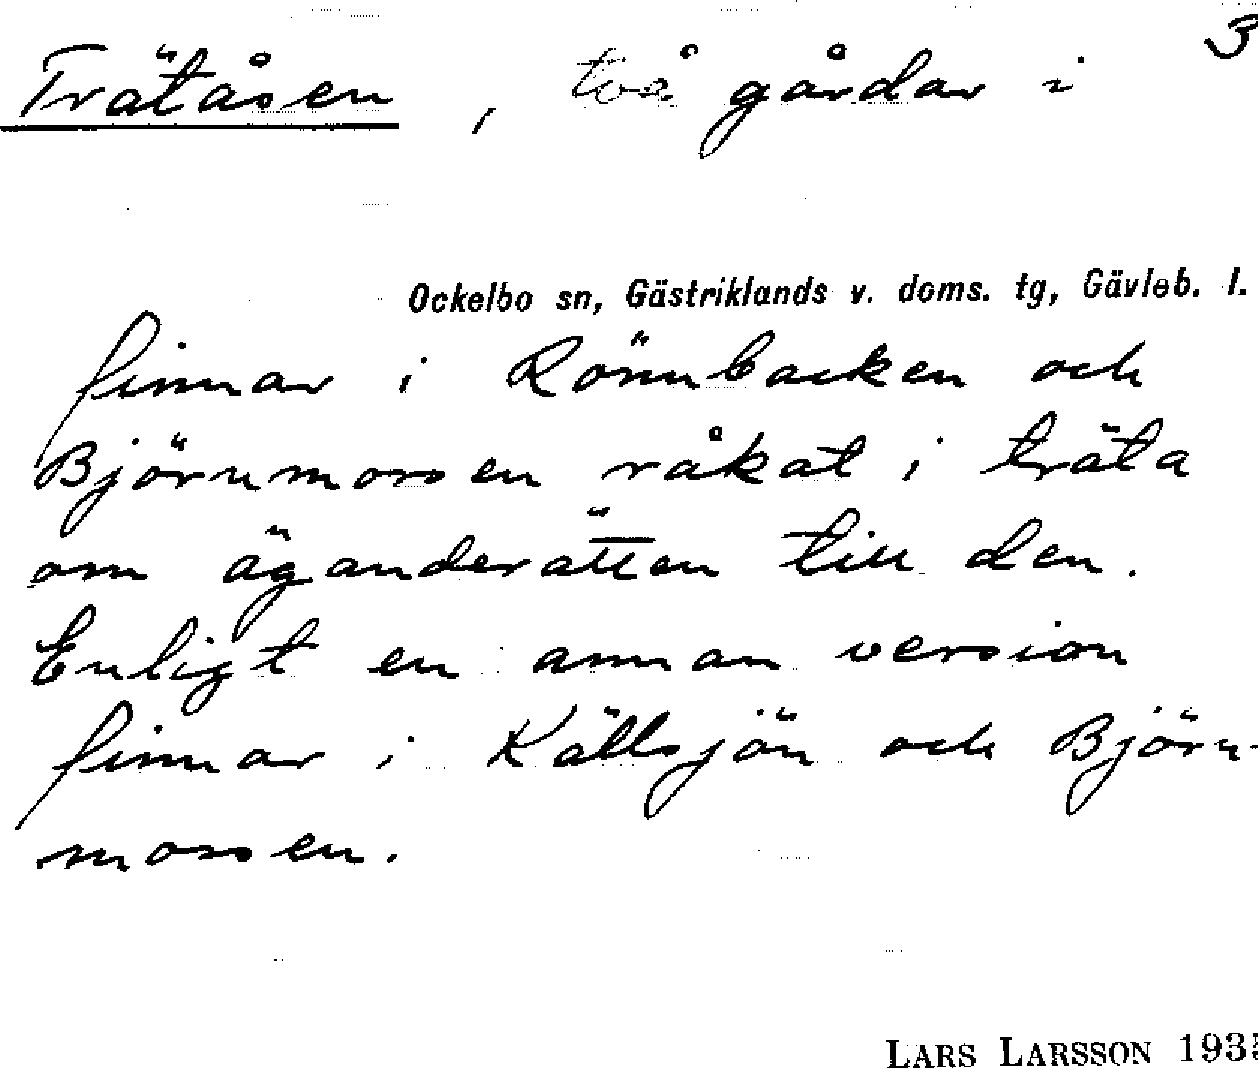 3
Trätåsen, två gårdar i
Ockelbo sn, Gästriklands v. doms. tg, Gävleb. l.
finnar i Rönnbacken och
Björnmossen råkat i träta
om äganderätten till den.
Enligt en annan version
finnar i Källsjön och Björn-
mossen.
LARS LARSSON 193